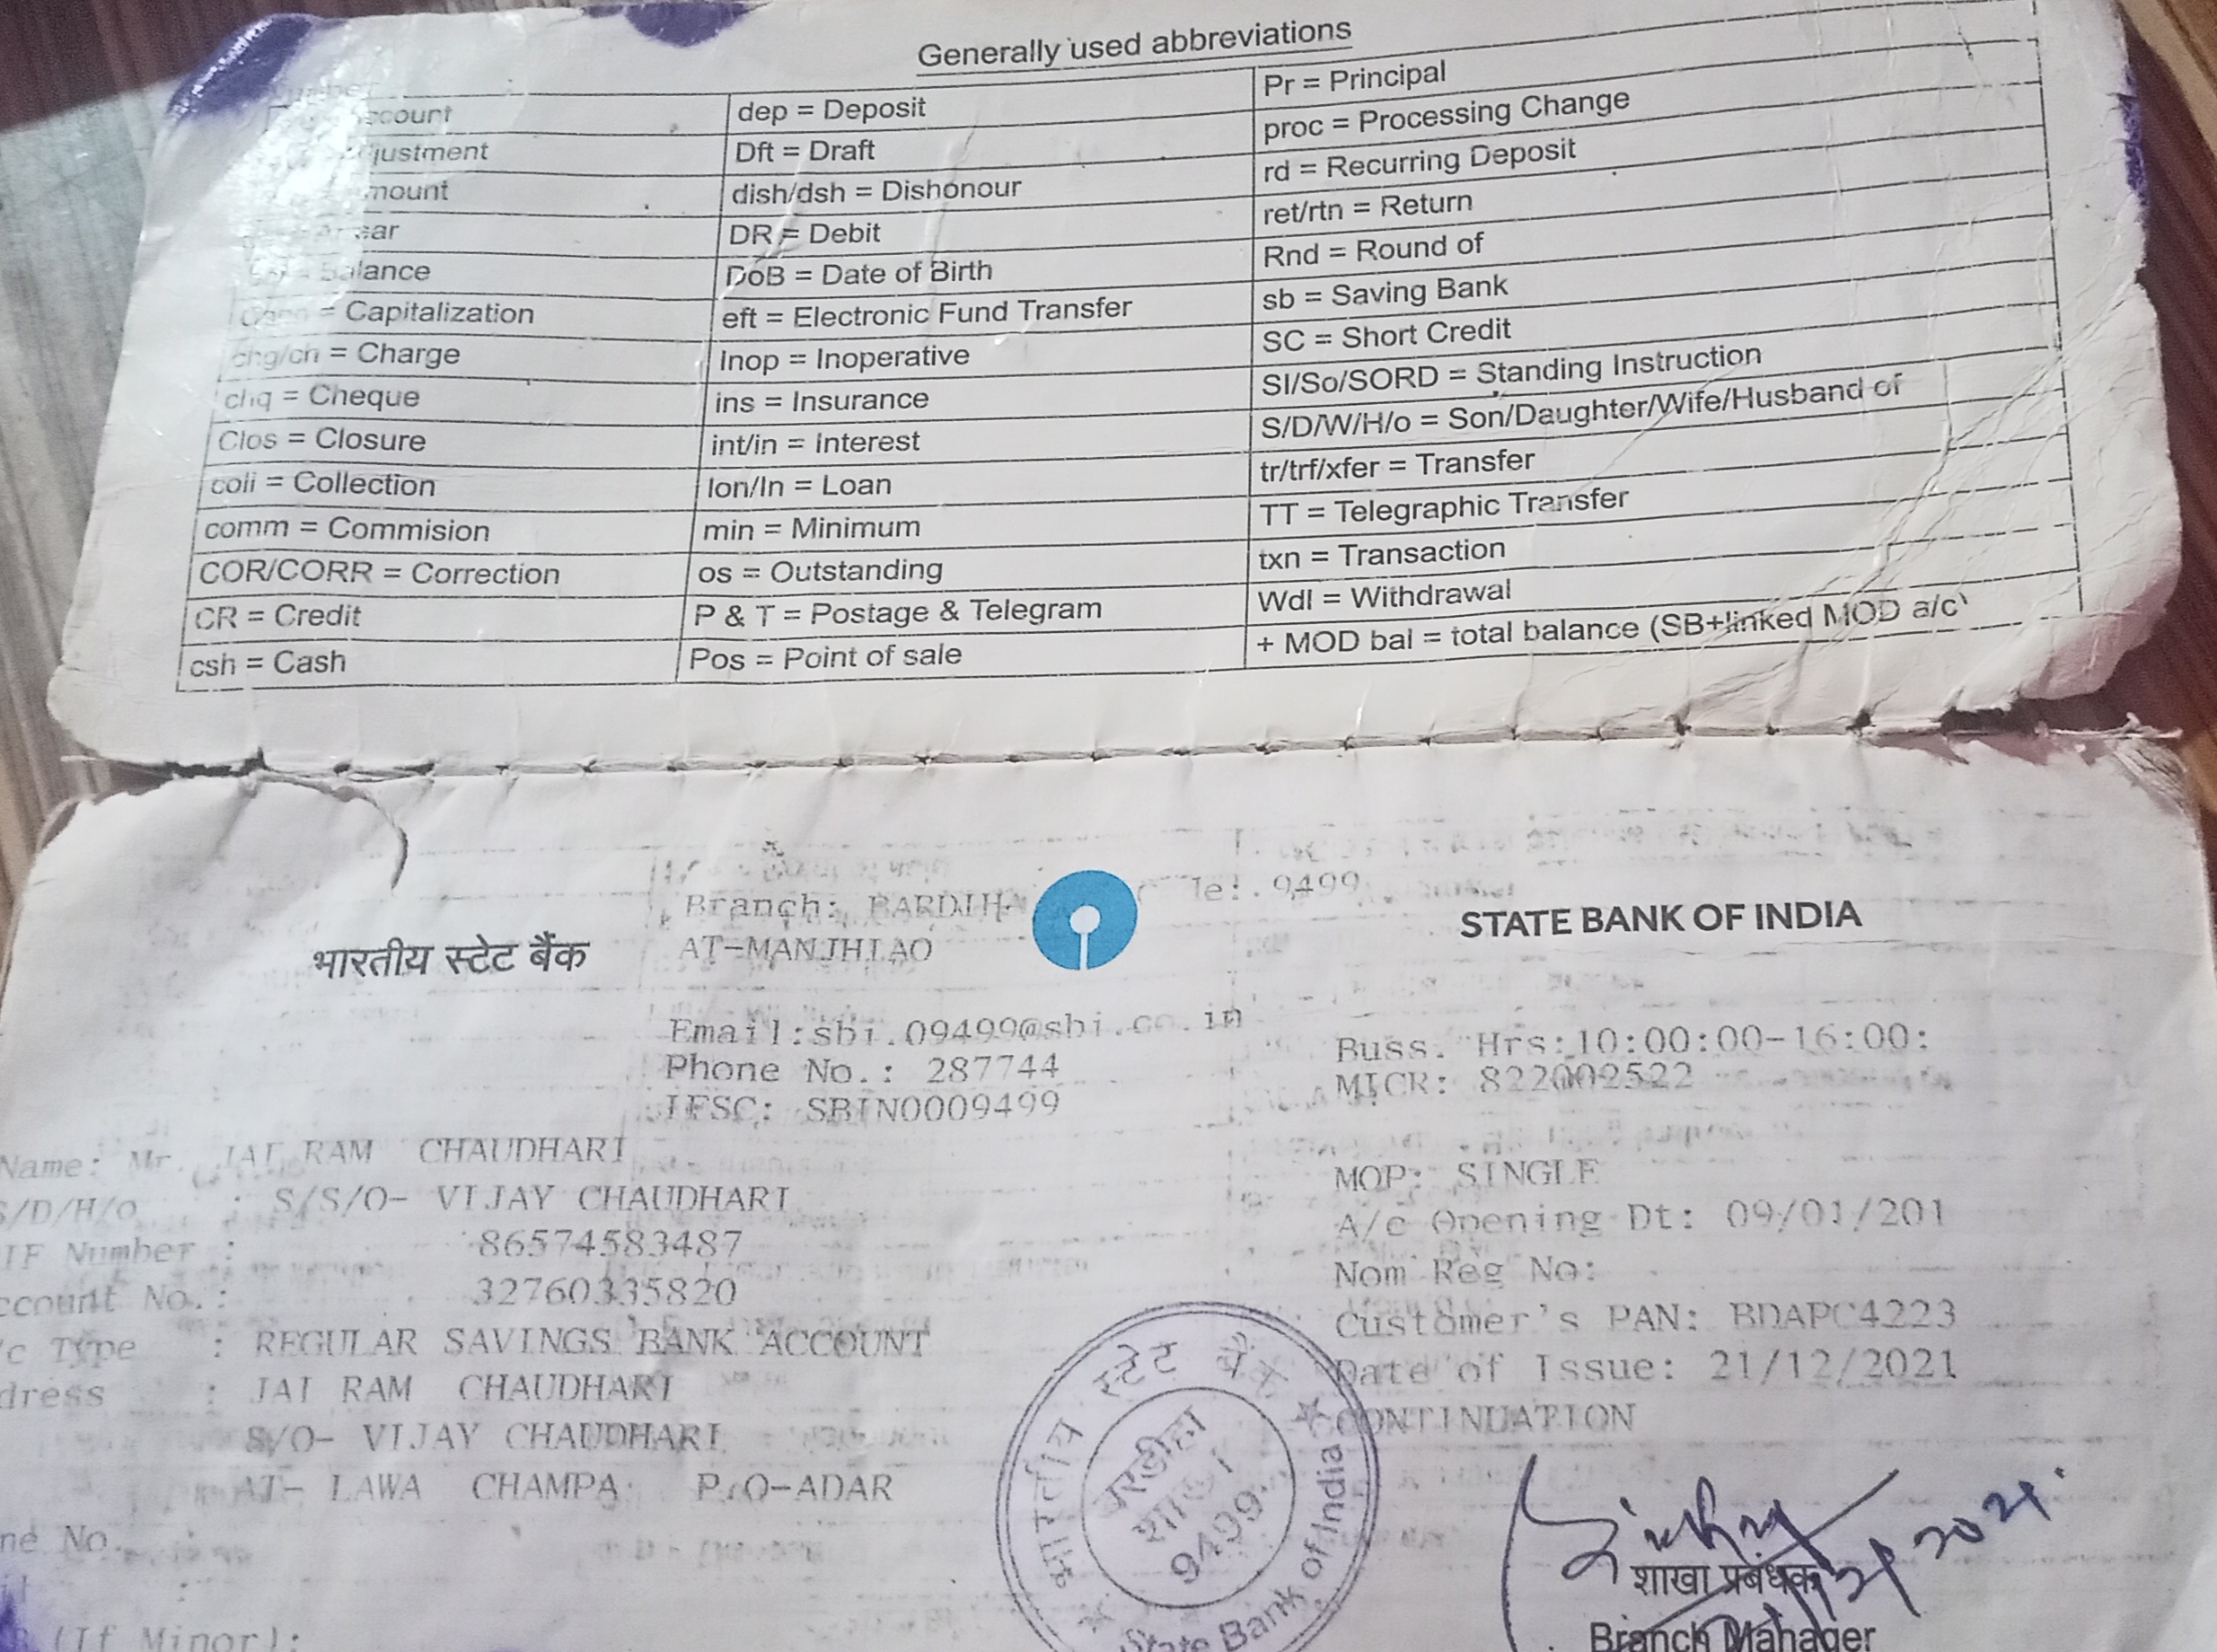 Generally used abbreviations
ccount
justment
mount
ear
Balance
= Capitalization
chg/ch = Charge
chq = Cheque
Clos = Closure
coll = Collection
comm = Commision
COR/CORR = Correction
CR = Credit
csh = Cash
dep = Deposit
Dft = Draft
dish/dsh = Dishonour
DR = Debit
DoB = Date of Birth
eft = Electronic Fund Transfer
Inop = Inoperative
ins = Insurance
int/in = Interest
lon/ln = Loan
min = Minimum
os = Outstanding
P & T = Postage & Telegram
Pos = Point of sale
Pr = Principal
proc = Processing Change
rd = Recurring Deposit
ret/rtn = Return
Rnd = Round of
sb = Saving Bank
SC = Short Credit
SI/So/SORD = Standing Instruction
S/D/W/H/o = Son/Daughter/Wife/Husband of
tr/trf/xfer = Transfer
TT = Telegraphic Transfer
txn = Transaction
Wdl = Withdrawal
+ MOD bal = total balance (SB+linked MOD a/c)
भारतीय स्टेट बैंक
STATE BANK OF INDIA
Branch: BARDIH 9499
AT-MANJHIAO
Email:sbi.09499@sbi.co.in
Phone No.: 287744
IFSC: SBIN0009499
Buss. Hrs:10:00:00-16:00:
MICR: 822002522
Name: Mr. JAI RAM CHAUDHARI
S/D/H/o : S/S/O- VIJAY CHAUDHARI
IF Number : 86574583487
ccount No.: 32760335820
/c Type : REGULAR SAVINGS BANK ACCOUNT
dress : JAI RAM CHAUDHARI
S/O- VIJAY CHAUDHARI
AT- LAWA CHAMPA P.O-ADAR
ne No.
(If Minor):
MOP: SINGLE
A/c Opening Dt: 09/01/201
Nom Reg No:
Customer's PAN: BDAPC4223
Date of Issue: 21/12/2021
CONTINUATION
भारतीय स्टेट बैंक
बरडीहा
शाखा
9499
State Bank of India
शाखा प्रबंधक
Branch Manager